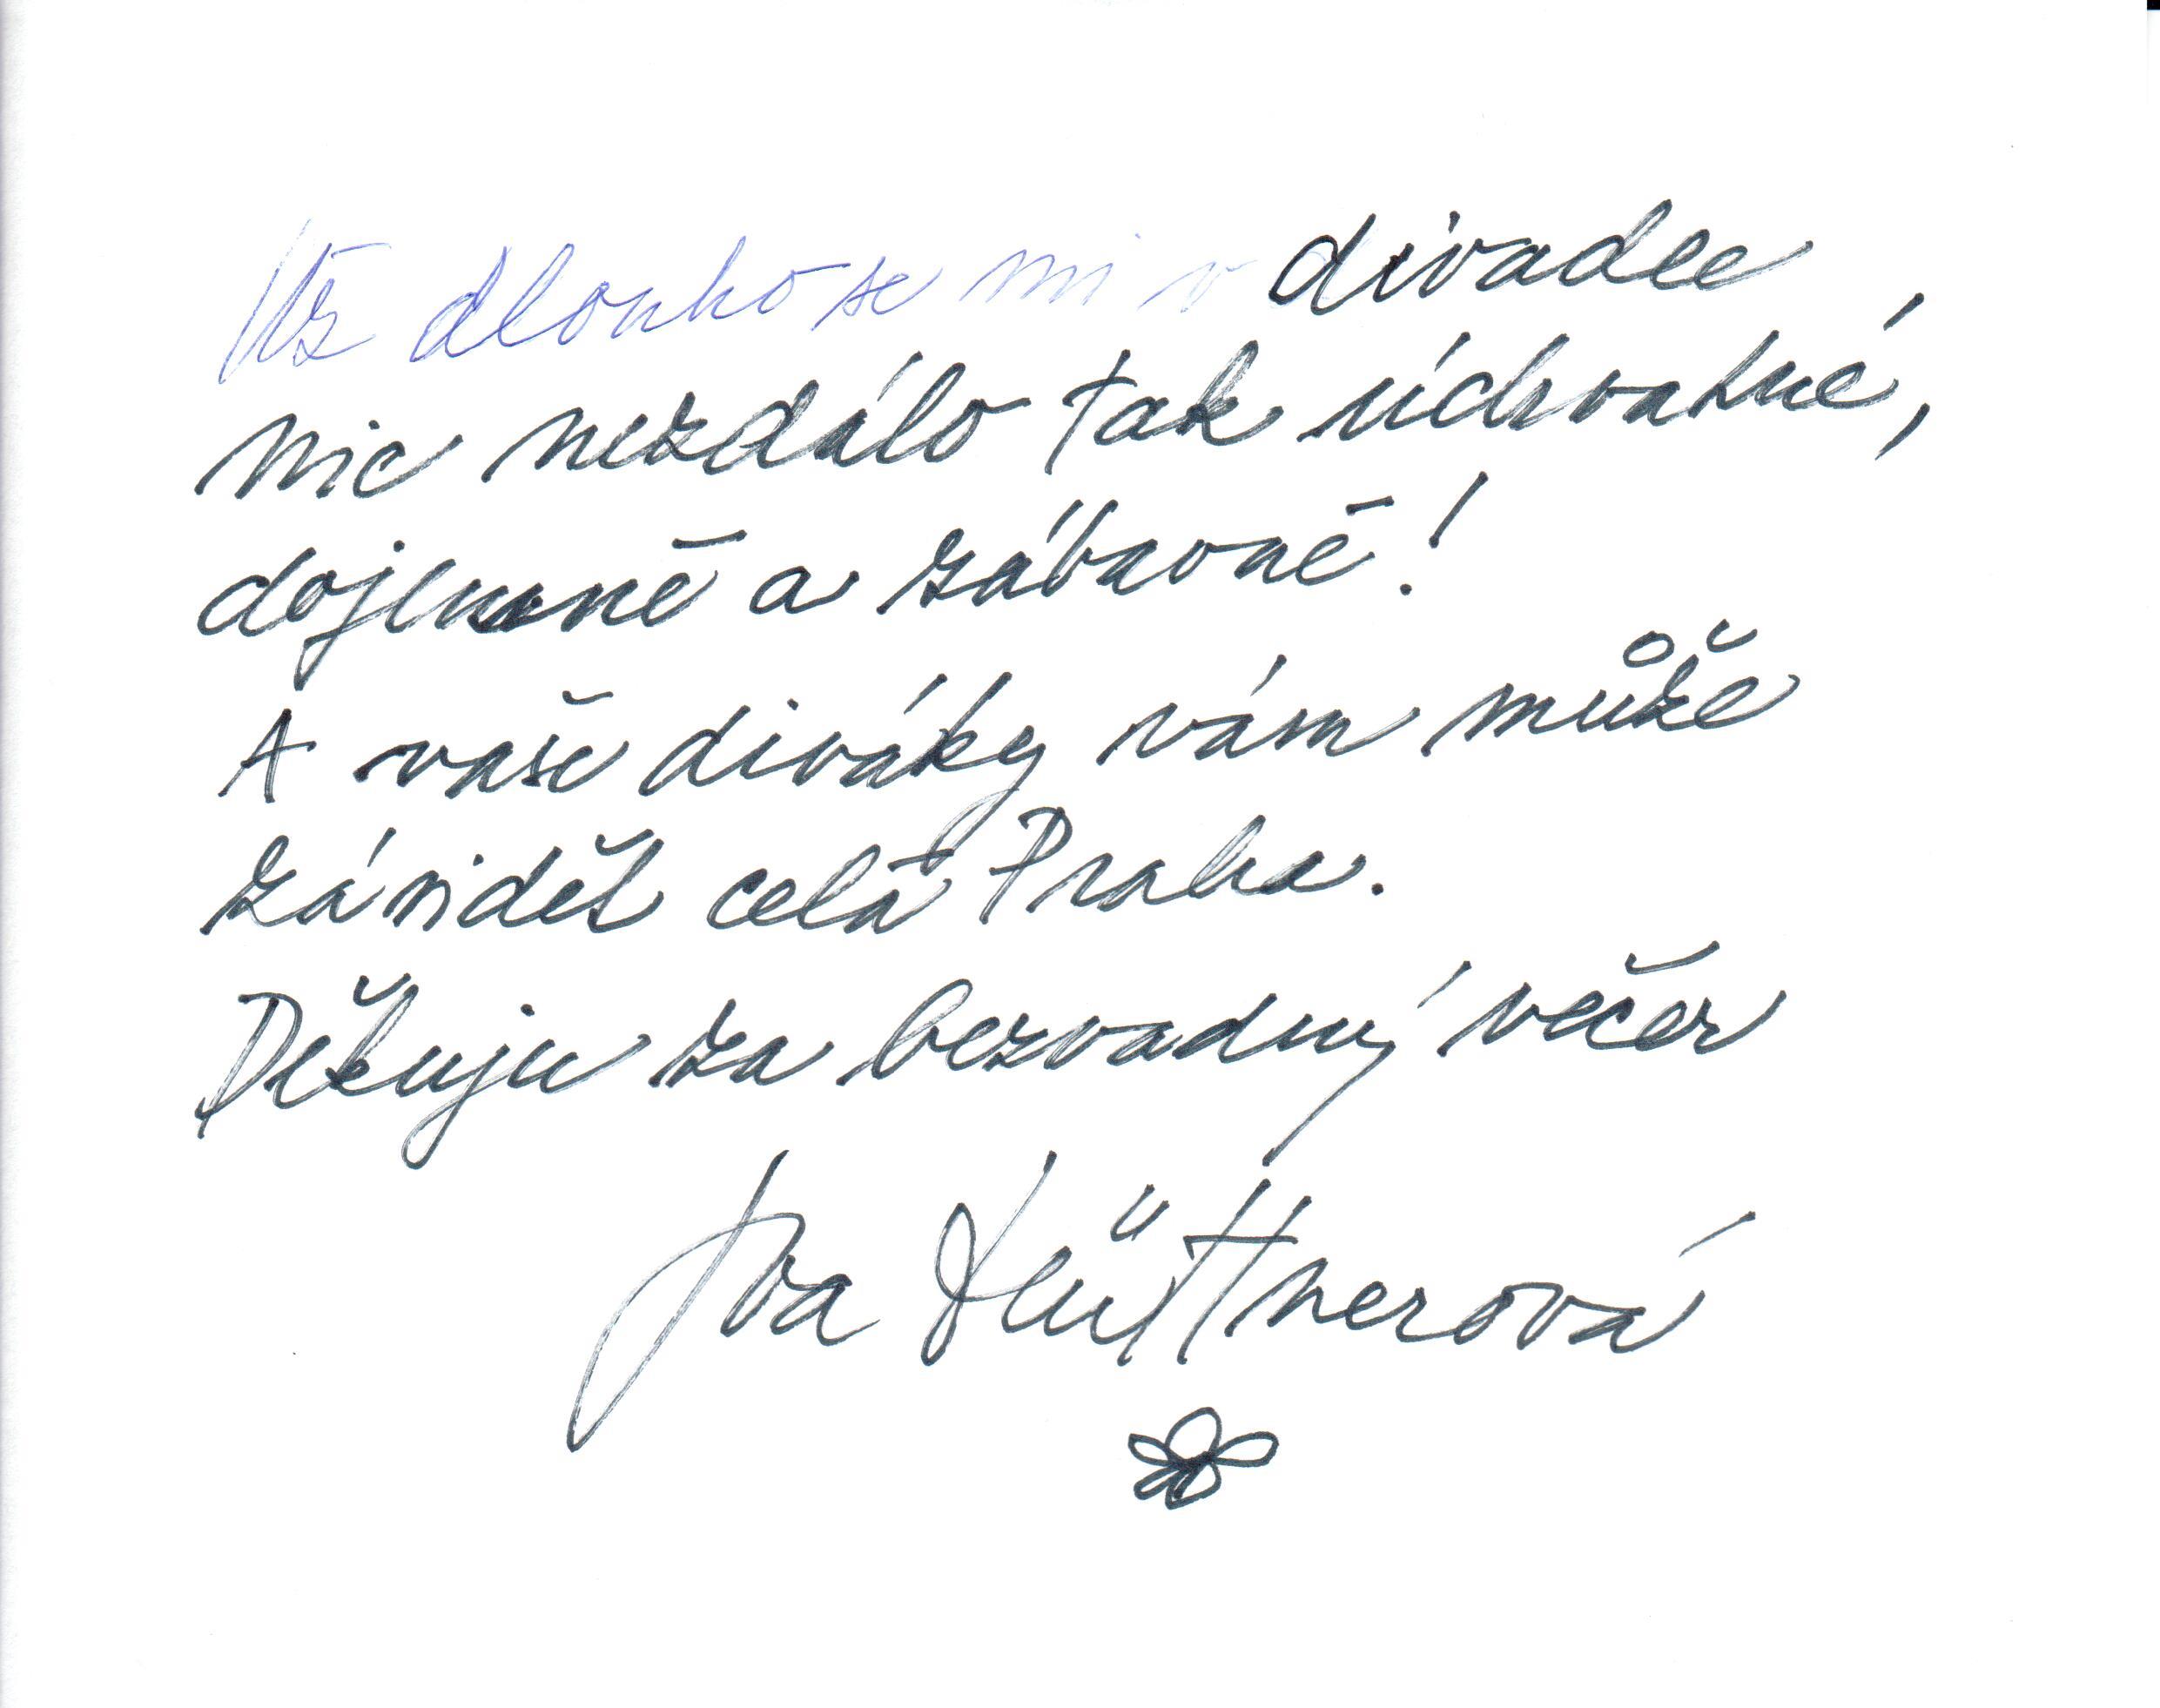 Už dlouho se mi v divadle
nic nezdálo tak úchvatné,
dojemné a zábavné!
A vaše diváky vám může
závidět celá Praha.
Děkuju za bezvadný večer
Iva Hüttnerová